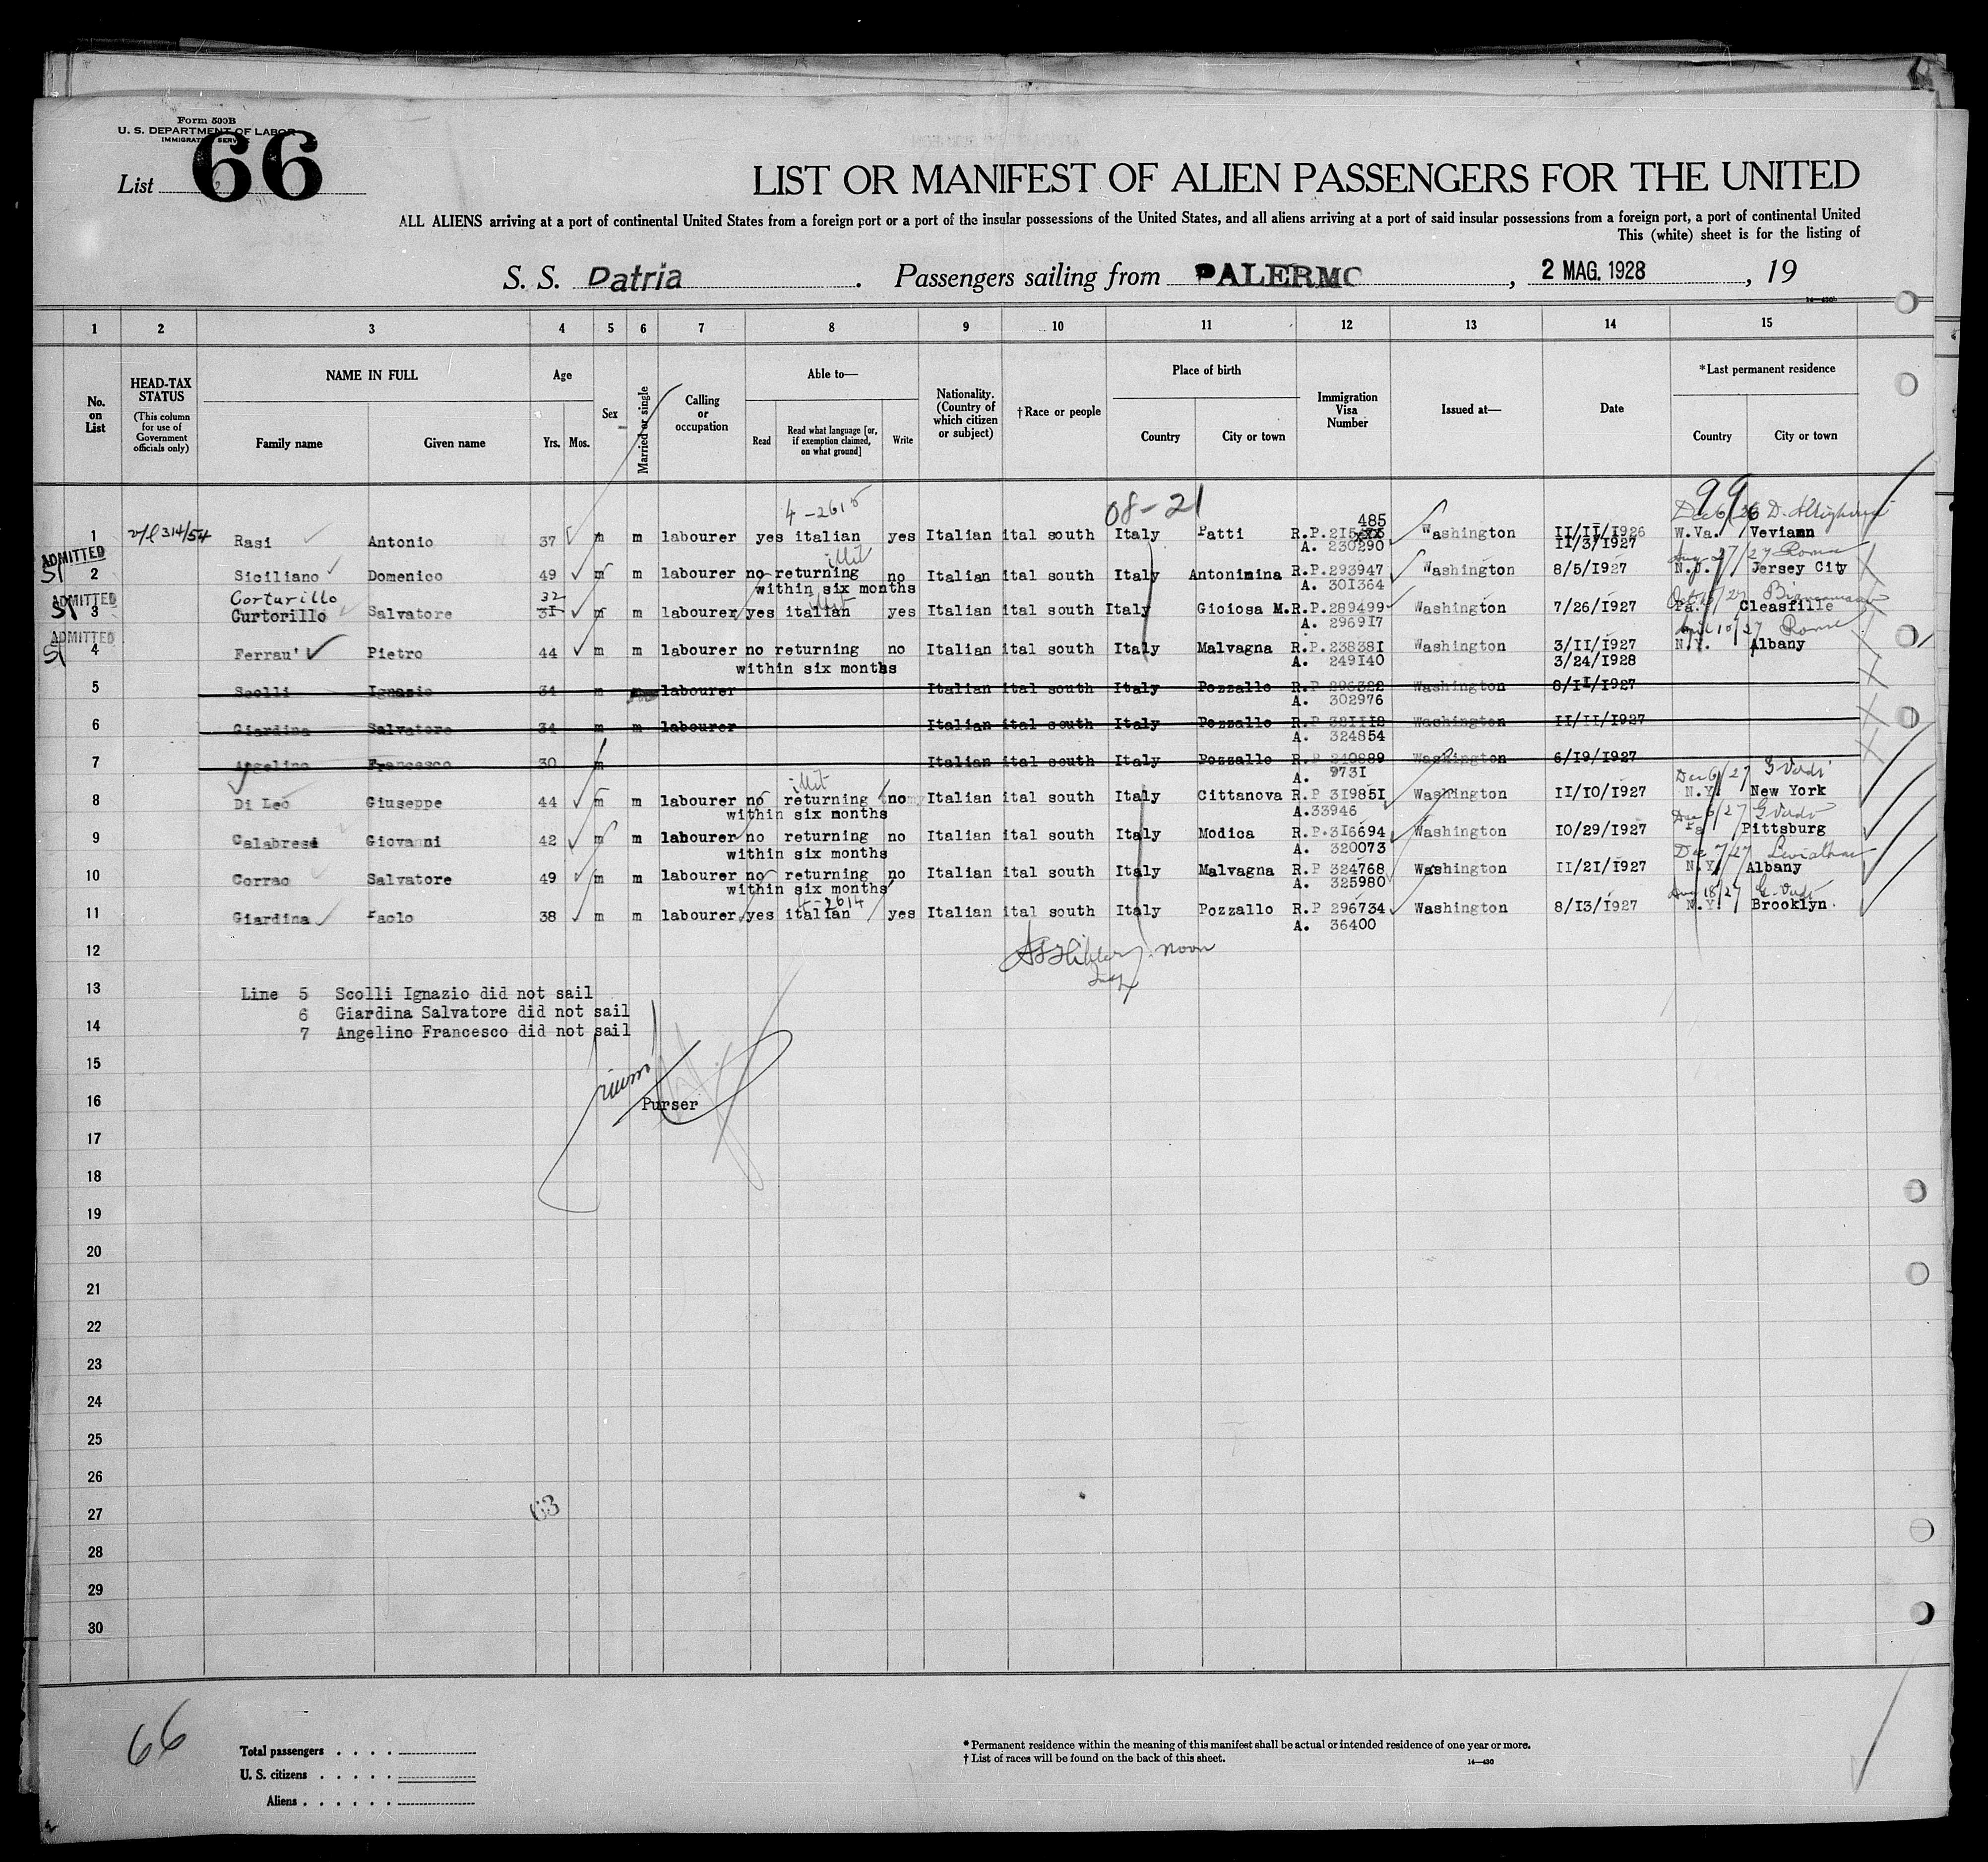 Form 500B
U. S. DEPARTMENT OF LABOR
IMMIGRATION SERVICE
List 66
LIST OR MANIFEST OF ALIEN PASSENGERS FOR THE UNITED
ALL ALIENS arriving at a port of continental United States from a foreign port or a port of the insular possessions of the United States, and all aliens arriving at a port of said insular possessions from a foreign port, a port of continental United
This (white) sheet is for the listing of
S. S. Patria . Passengers sailing from PALERMO , 2 MAG. 1928 , 19
1 2 3 4 5 6 7 8 9 10 11 12 13 14 15
No. on List
HEAD-TAX STATUS (This column for use of Government officials only)
NAME IN FULL Family name Given name
Age Yrs. Mos.
Sex
Married or single
Calling or occupation
Able to— Read Read what language [or, if exemption claimed, on what ground] Write
Nationality. (Country of which citizen or subject)
†Race or people
Place of birth Country City or town
Immigration Visa Number
Issued at—
Date
*Last permanent residence Country City or town
4-2615 08-21 99
485
1 Rasi Antonio 37 m m labourer yes italian yes Italian ital south Italy Patti R.P.215xxx Washington 11/11/1926 W.Va. Veviann
A. 230290 11/3/1927
ADMITTED
SI 2 Siciliano Domenico 49 m m labourer no returning no Italian ital south Italy Antonimina R.P.293947 Washington 8/5/1927 N.J. Jersey City
illit Roma
within six months A. 301364
Corturillo 32
ADMITTED
SI 3 Curtorillo Salvatore 31 m m labourer yes italian yes Italian ital south Italy Gioiosa M. R.P.289499 Washington 7/26/1927 Pa. Cleasfille
A. 296917
ADMITTED
SI 4 Ferrau' Pietro 44 m m labourer no returning no Italian ital south Italy Malvagna R.P.238381 Washington 3/11/1927 N.Y. Albany
April 10/27 Roma
within six months A. 249140 3/24/1928
5 Scolli Ignazio 34 m labourer Italian ital south Italy Pozzallo R.P 296322 Washington 8/11/1927
A. 302976
6 Giardina Salvatore 34 m m labourer Italian ital south Italy Pozzallo R.P 321118 Washington 11/11/1927
A. 324854
7 Angelino Francesco 30 m Italian ital south Italy Pozzallo R.P 240889 Washington 6/19/1927
A. 9731
illit Dec 6/27 G Verdi
8 Di Leo Giuseppe 44 m m labourer no returning no Italian ital south Italy Cittanova R.P 319851 Washington 11/10/1927 N.Y. New York
within six months A.33946
Dec 6/27 G Verdi
9 Calabrese Giovanni 42 m m labourer no returning no Italian ital south Italy Modica R.P.316694 Washington 10/29/1927 Pa Pittsburg
within six months A. 320073
Dec 7/27 Leviathan
10 Corrao Salvatore 49 m m labourer no returning no Italian ital south Italy Malvagna R.P 324768 Washington 11/21/1927 N.Y. Albany
within six months A. 325980
4-2614 Aug 18/27 G. Verdi
11 Giardina Paolo 38 m m labourer yes italian yes Italian ital south Italy Pozzallo R.P 296734 Washington 8/13/1927 N.Y. Brooklyn.
A. 36400
12
noon
13
Line 5 Scolli Ignazio did not sail
6 Giardina Salvatore did not sail
14
7 Angelino Francesco did not sail
15
16
Purser
17
18
19
20
21
22
23
24
25
26
27
63
28
29
30
66
Total passengers
U. S. citizens
Aliens
* Permanent residence within the meaning of this manifest shall be actual or intended residence of one year or more.
† List of races will be found on the back of this sheet.
14—430